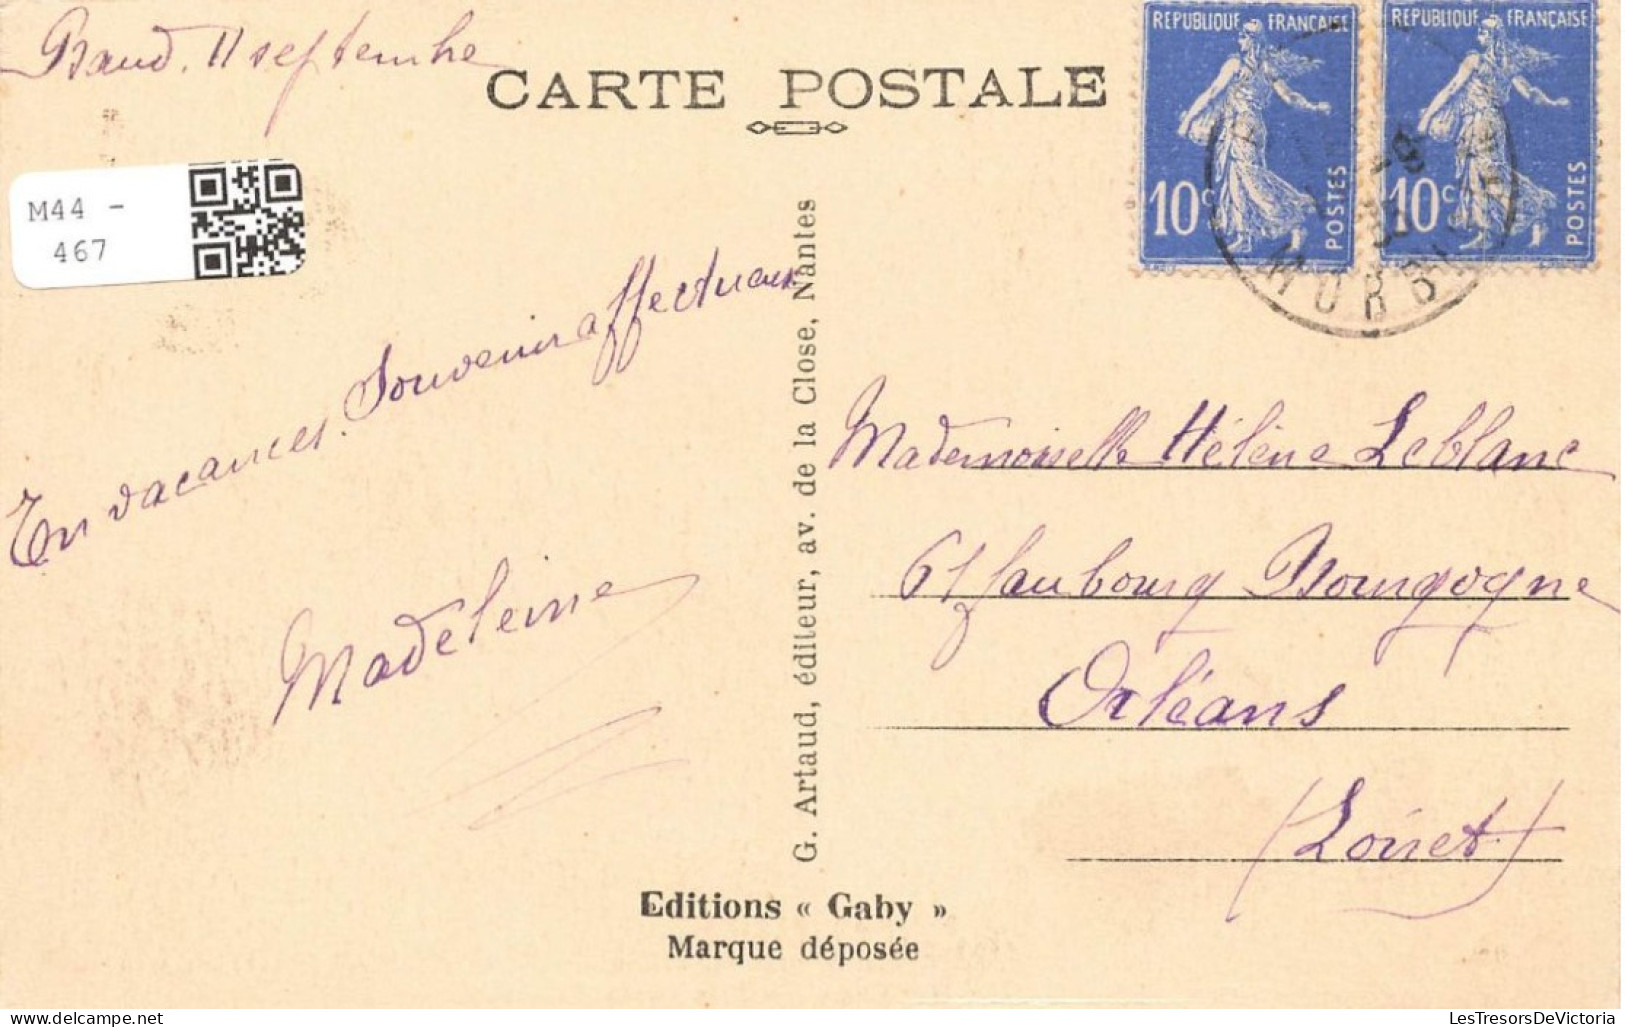 Baud. 11 septembre
CARTE POSTALE
REPUBLIQUE FRANÇAISE
10c
POSTES
REPUBLIQUE FRANÇAISE
10c
POSTES
MORB
M44 -
467
En vacances. Souvenir affectueux
Madeleine
G. Artaud, éditeur, av. de la Close, Nantes
Mademoiselle Hélène Leblanc
61 faubourg Bourgogne
Orléans
(Loiret)
Editions « Gaby »
Marque déposée
delcampe.net
LesTresorsDeVictoria